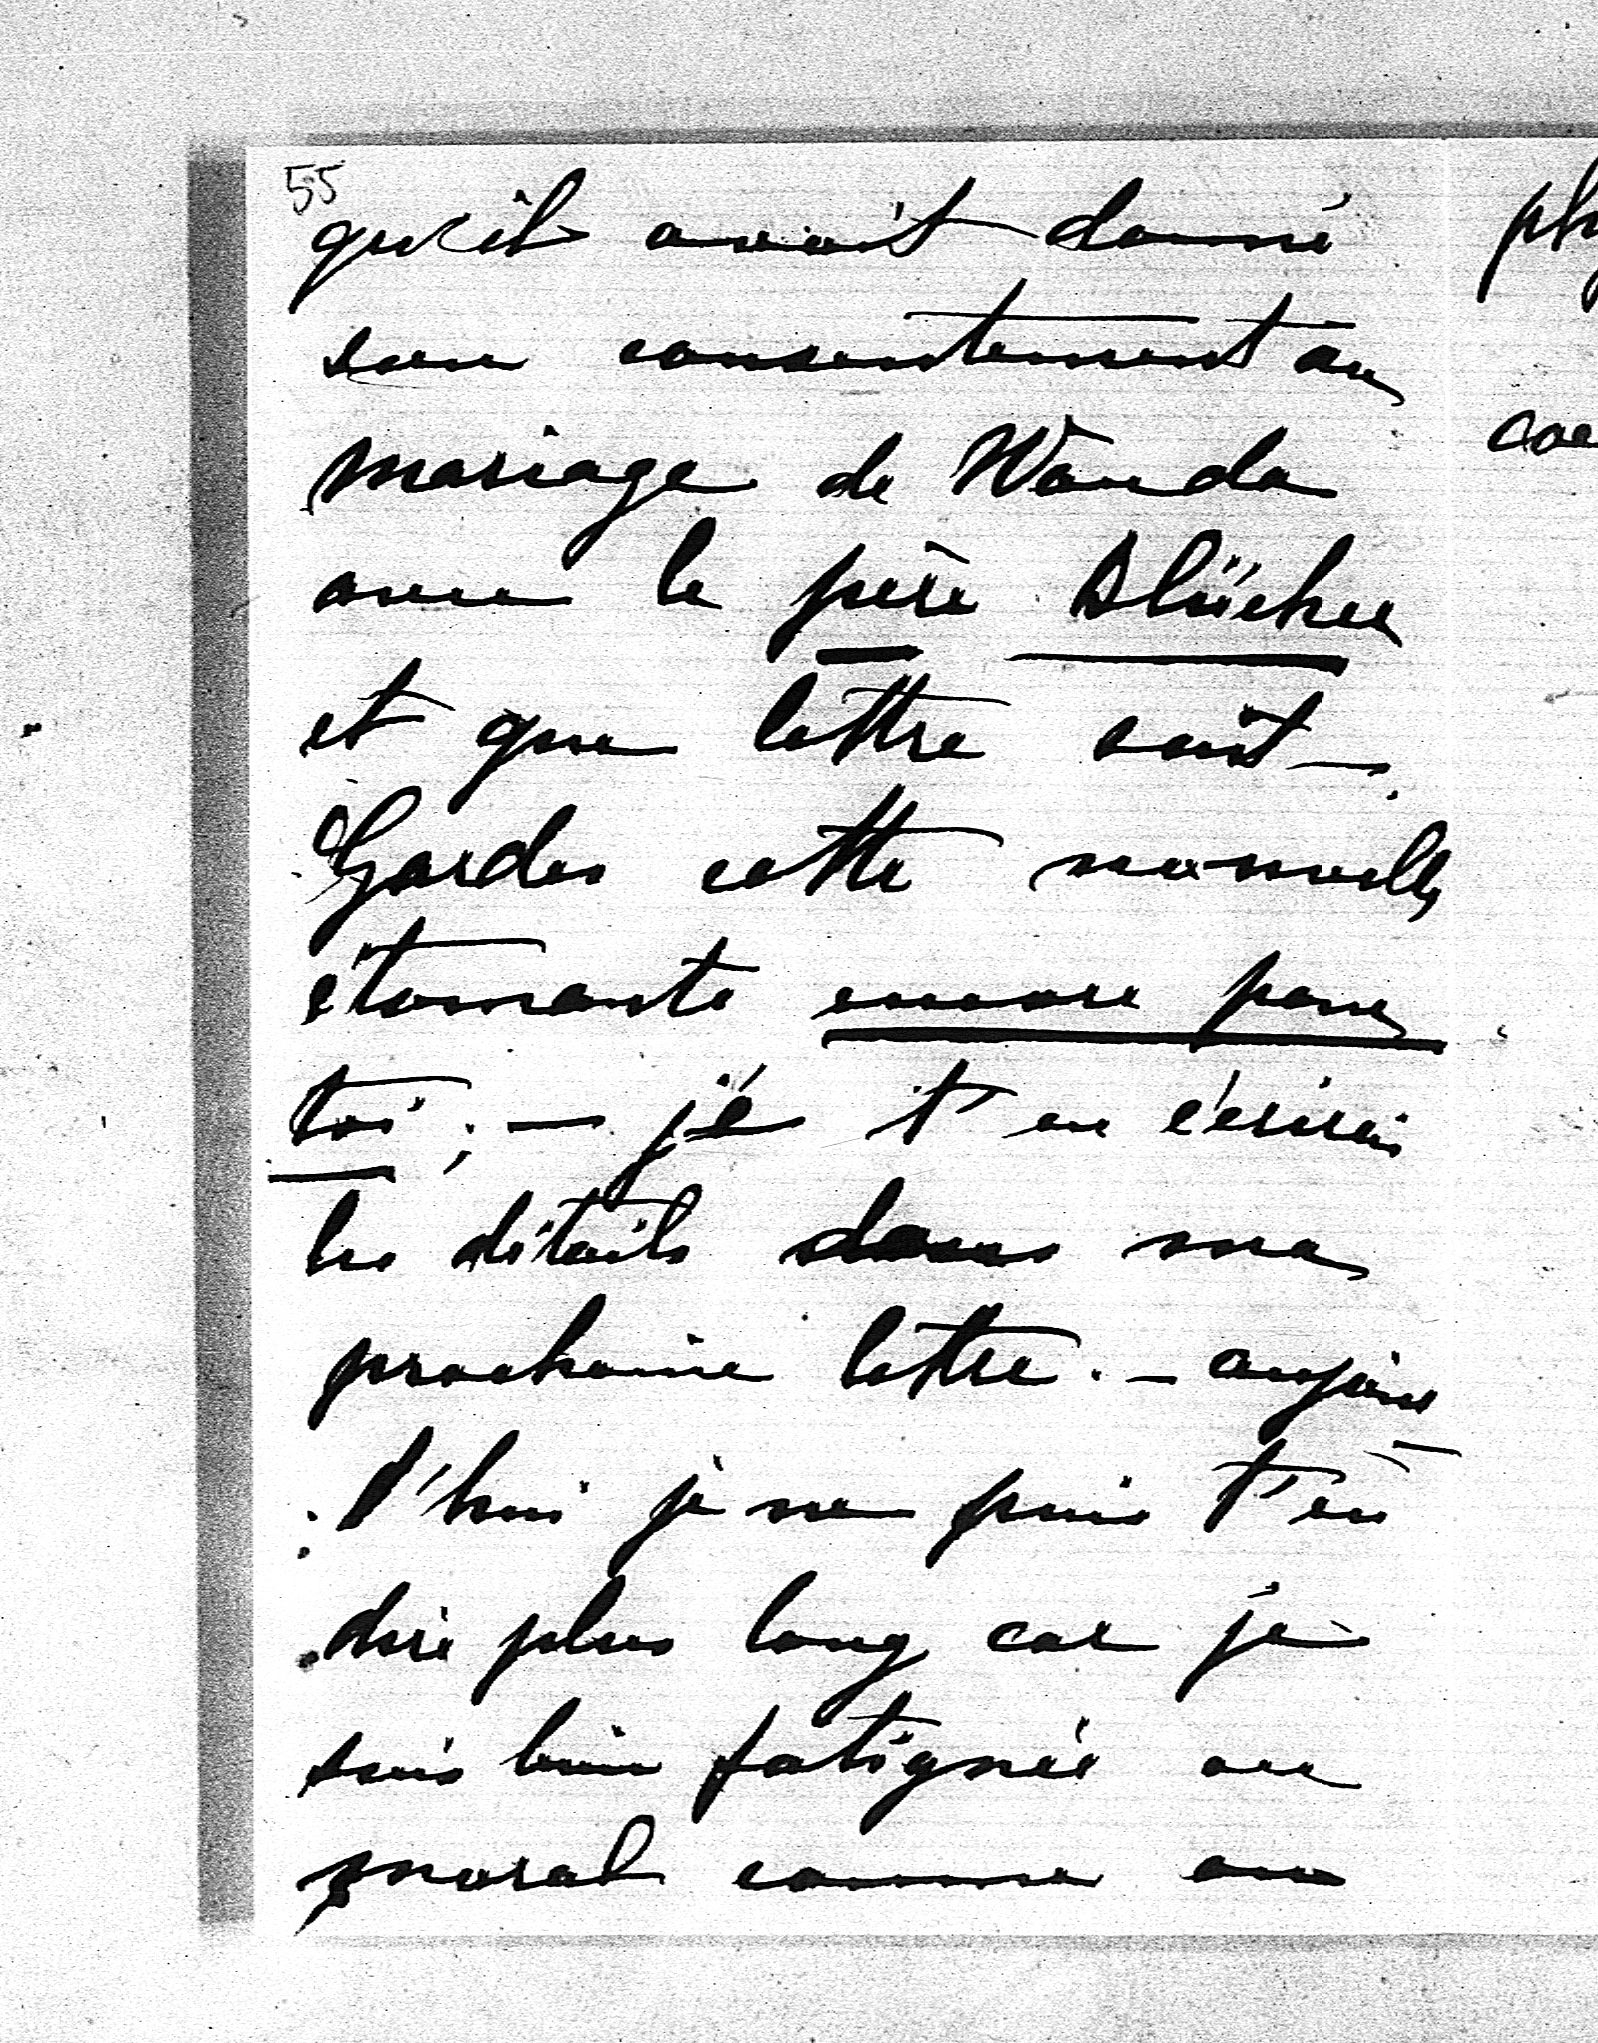 55
qu'il avait donné
son consentement au
mariage de Wanda
avec le père Blücher
et que lettre suit –
Gardes cette nouvelle
étonnante encore pour
toi ; – je t'en écrirai
les détails dans ma
prochaine lettre. – aujour
d'hui je ne puis t'en
dire plus long car je
suis bien fatiguée au
moral comme au